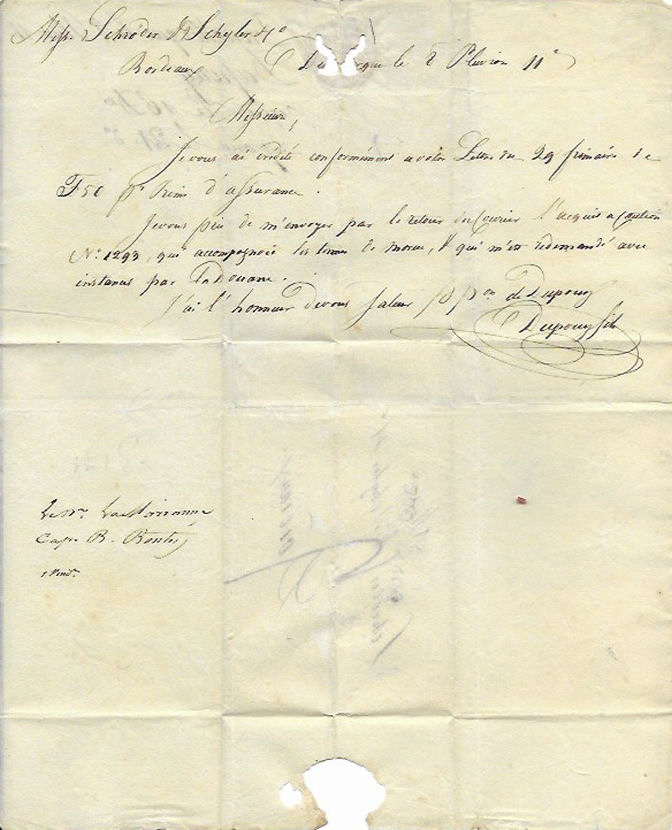 Mess. Schröder & Schyler & Co
Bordeaux Du que le 2 Pluvion 11e
Messieurs,
Je vous ai crédité conformément a votre Lettre du 29 frimaire de
F 50 pr Prime d'assurance.
Je vous prie de m'envoyer par le retour du Courier l'acquis a Caution
No. 1293, qui accompagnoit les de morue, & qui m'est redemandé avec
instance par la Douane.
J'ai l'honneur de vous saluer pon de Dupouy
Dupouy fils
Le Nre La Marianne
Cape B.